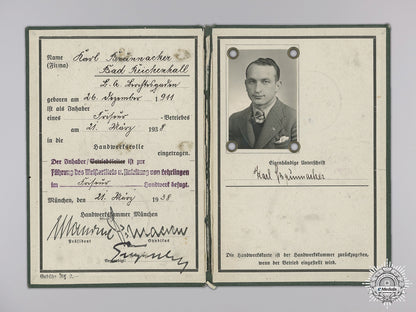 Name Karl Brünnacker
(Firma) Bad Reichenhall
L. A. Berchtesgaden
geboren am 26. Dezember 1911
ist als Inhaber
eines Friseur-Betriebes
am 21. März 1938
in die Handwerksrolle
eingetragen.
Der Inhaber/Betriebsleiter ist zur
Führung des Meistertitels u. Anleitung von Lehrlingen
im Friseur Handwerk befugt.
München, den 21. März 1938
Handwerkskammer München
Präsident Syndikus
Eigenhändige Unterschrift
Karl Brünnacker
Die Handwerkskarte ist der Handwerkskammer zurückzugeben,
wenn der Betrieb eingestellt wird.